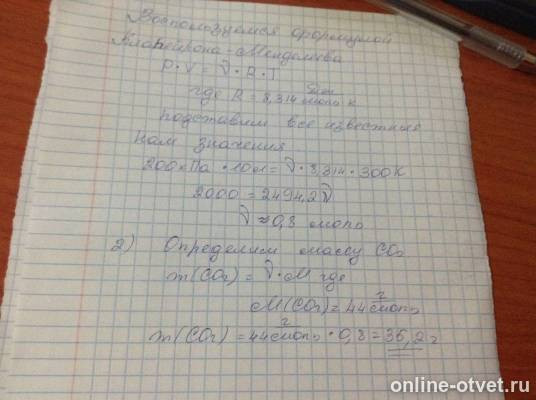 Воспользуемся формулой
Клапейрона-Менделеева
P·V = ν·R·T
где R = 8,314 моль·К
Подставим все известные
нам значения
200кПа · 10л = ν · 8,314 · 300К
2000 = 2494,2ν
ν ≈ 0,8 моль
2) Определим массу CO₂
m(CO₂) = ν·M где
M(CO₂) = 44 г/моль
m(CO₂) = 44 г/моль · 0,8 = 35,2 г
online-otvet.ru